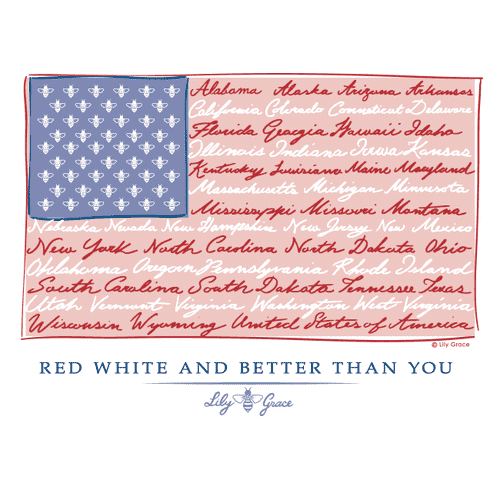 Alabama Alaska Arizona Arkansas
California Colorado Connecticut Delaware
Florida Georgia Hawaii Idaho
Illinois Indiana Iowa Kansas
Kentucky Louisiana Maine Maryland
Massachusetts Michigan Minnesota
Mississippi Missouri Montana
Nebraska Nevada New Hampshire New Jersey New Mexico
New York North Carolina North Dakota Ohio
Oklahoma Oregon Pennsylvania Rhode Island
South Carolina South Dakota Tennessee Texas
Utah Vermont Virginia Washington West Virginia
Wisconsin Wyoming United States of America
© Lily Grace
RED WHITE AND BETTER THAN YOU
Lily Grace